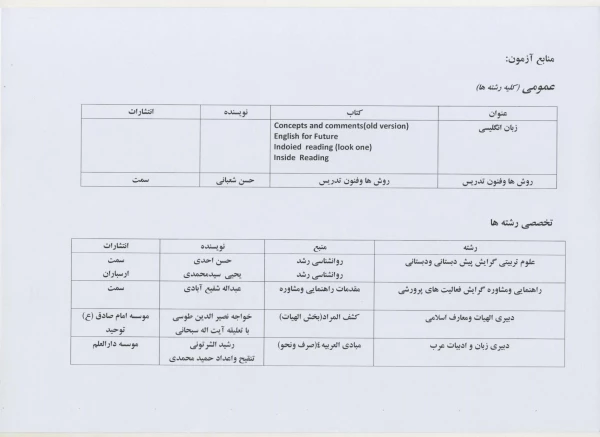 منابع آزمون:
عمومی (کلیه رشته ها)
عنوان کتاب نویسنده انتشارات
زبان انگلیسی Concepts and comments(old version)
English for Future
Indoied reading (look one)
Inside Reading
روش ها وفنون تدریس روش ها وفنون تدریس حسن شعبانی سمت
تخصصی رشته ها
رشته منبع نویسنده انتشارات
علوم تربیتی گرایش پیش دبستانی ودبستانی روانشناسی رشد حسن احدی سمت
روانشناسی رشد یحیی سیدمحمدی ارسباران
راهنمایی ومشاوره گرایش فعالیت های پرورشی مقدمات راهنمایی ومشاوره عبداله شفیع آبادی سمت
دبیری الهیات ومعارف اسلامی کشف المراد(بخش الهیات) خواجه نصیر الدین طوسی موسسه امام صادق (ع)
با تعلیقه آیت اله سبحانی توحید
دبیری زبان و ادبیات عرب مبادی العربیه ٤(صرف ونحو) رشید الشرتونی موسسه دارالعلم
تنقیح واعداد حمید محمدی